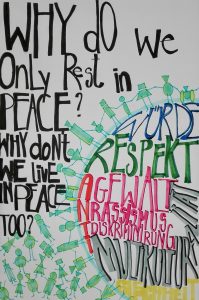 WHY do We
Only Rest in
PEACE?
WHY dON'T
WE LIVE
IN PEACE
TOO?
WÜRDE
RESPEKT
GEWALT
RASSISMUS
DISKRIMINIERUNG